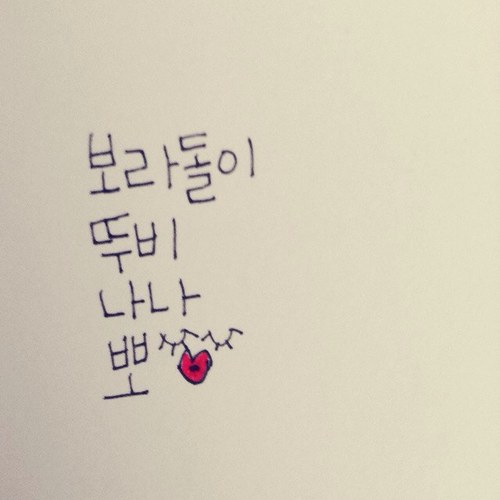 보라돌이
뚜비
나나
뽀